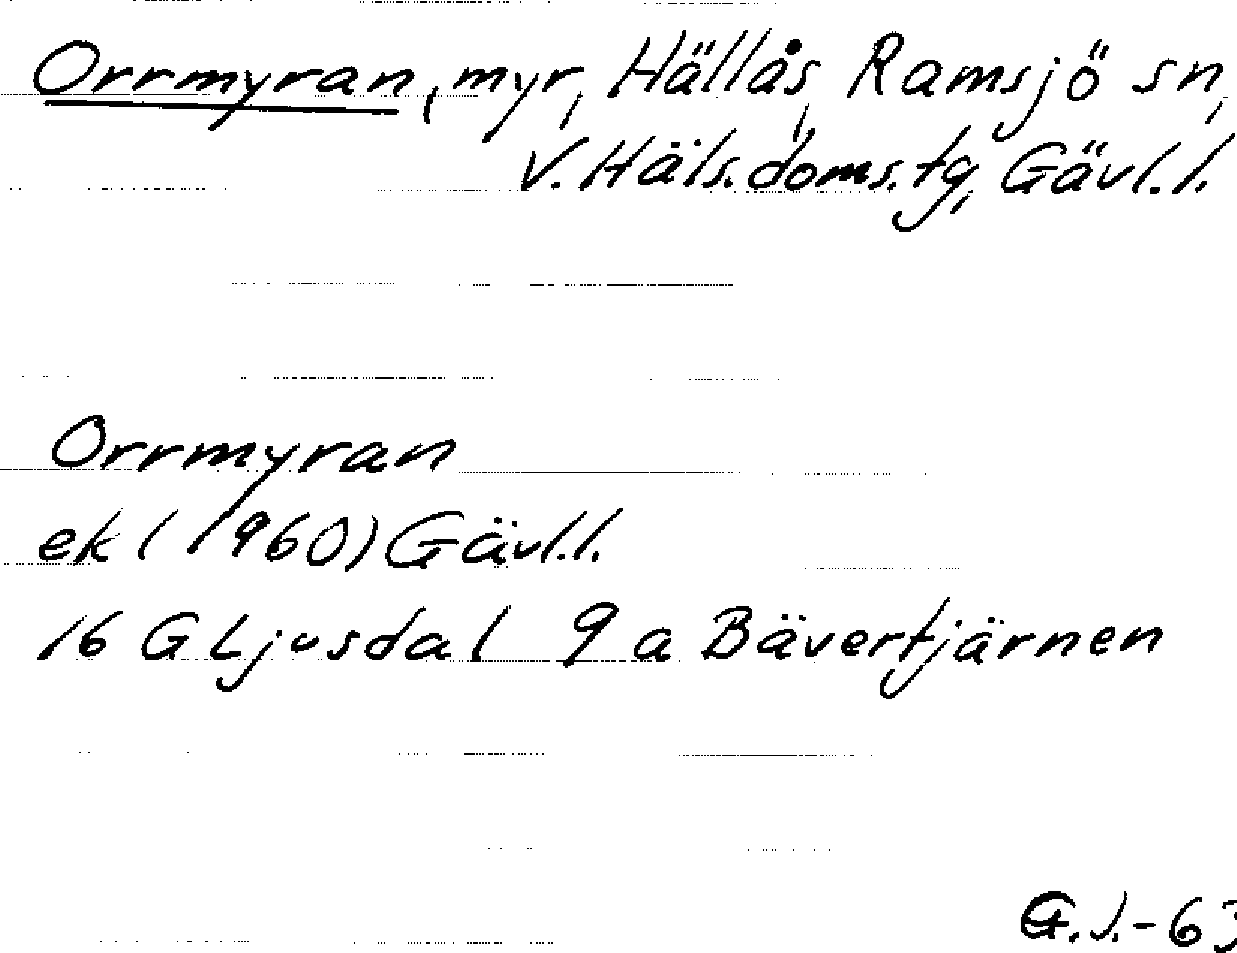 Orrmyran, myr, Hällås, Ramsjö sn,
V. Häls. doms. tg, Gävl. l.
Orrmyran
ek (1960) Gävl. l.
16 G Ljusdal 9 a Bävertjärnen
G. J. - 63